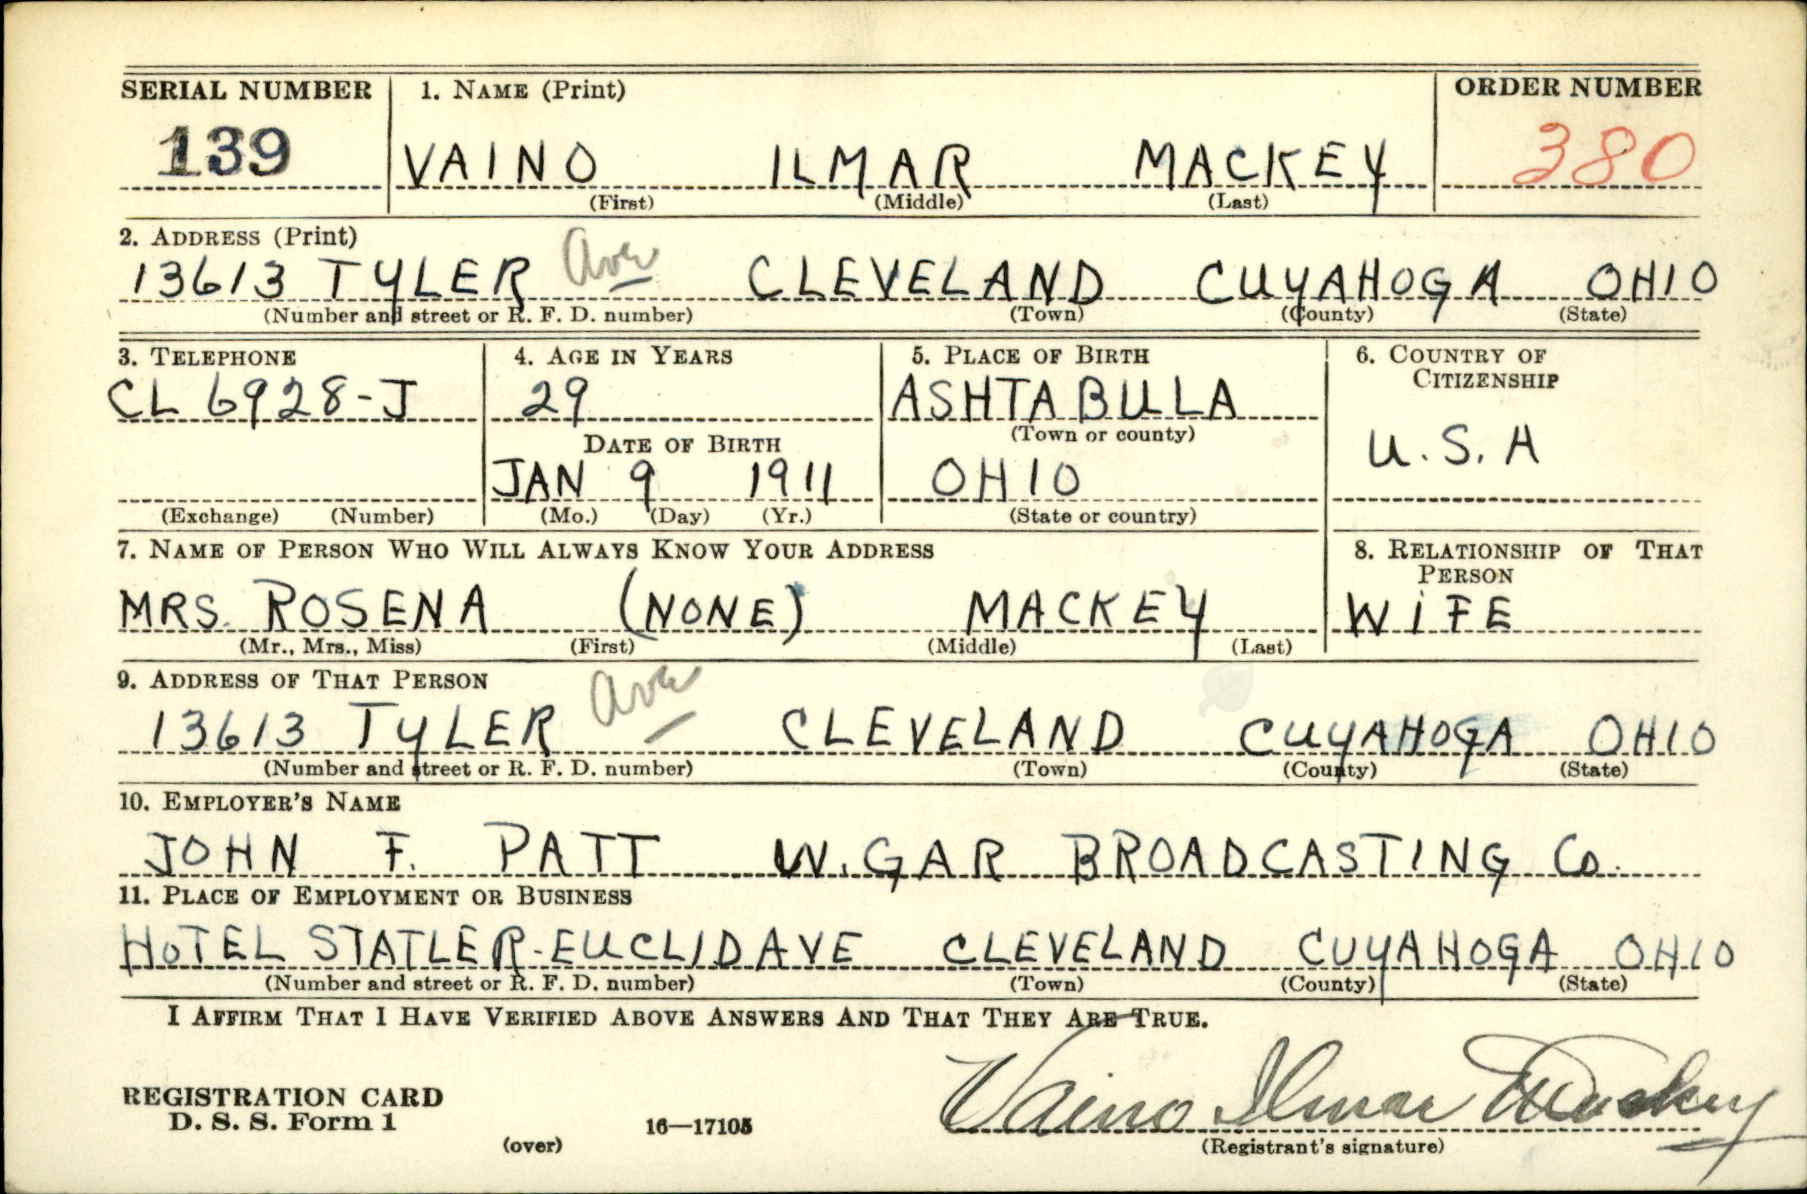 SERIAL NUMBER 1. NAME (Print) ORDER NUMBER
139 VAINO ILMAR MACKEY 380
(First) (Middle) (Last)
2. ADDRESS (Print)
13613 TYLER Ave CLEVELAND CUYAHOGA OHIO
(Number and street or R. F. D. number) (Town) (County) (State)
3. TELEPHONE 4. AGE IN YEARS 5. PLACE OF BIRTH 6. COUNTRY OF
CITIZENSHIP
CL 6928-J 29 ASHTABULA
(Town or county)
DATE OF BIRTH U.S.A
JAN 9 1911 OHIO
(Exchange) (Number) (Mo.) (Day) (Yr.) (State or country)
7. NAME OF PERSON WHO WILL ALWAYS KNOW YOUR ADDRESS 8. RELATIONSHIP OF THAT
PERSON
MRS. ROSENA (NONE) MACKEY WIFE
(Mr., Mrs., Miss) (First) (Middle) (Last)
9. ADDRESS OF THAT PERSON
13613 TYLER Ave CLEVELAND CUYAHOGA OHIO
(Number and street or R. F. D. number) (Town) (County) (State)
10. EMPLOYER'S NAME
JOHN F. PATT W.GAR BROADCASTING Co.
11. PLACE OF EMPLOYMENT OR BUSINESS
HOTEL STATLER-EUCLID AVE CLEVELAND CUYAHOGA OHIO
(Number and street or R. F. D. number) (Town) (County) (State)
I AFFIRM THAT I HAVE VERIFIED ABOVE ANSWERS AND THAT THEY ARE TRUE.
REGISTRATION CARD
D. S. S. Form 1
(over) 16—17105
Vaino Ilmar Mackey
(Registrant's signature)